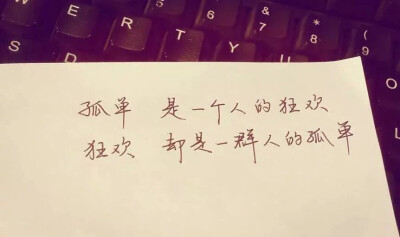 W E R T Y U
6 7 8
S D
孤单 是一个人的狂欢
狂欢 却是一群人的孤单